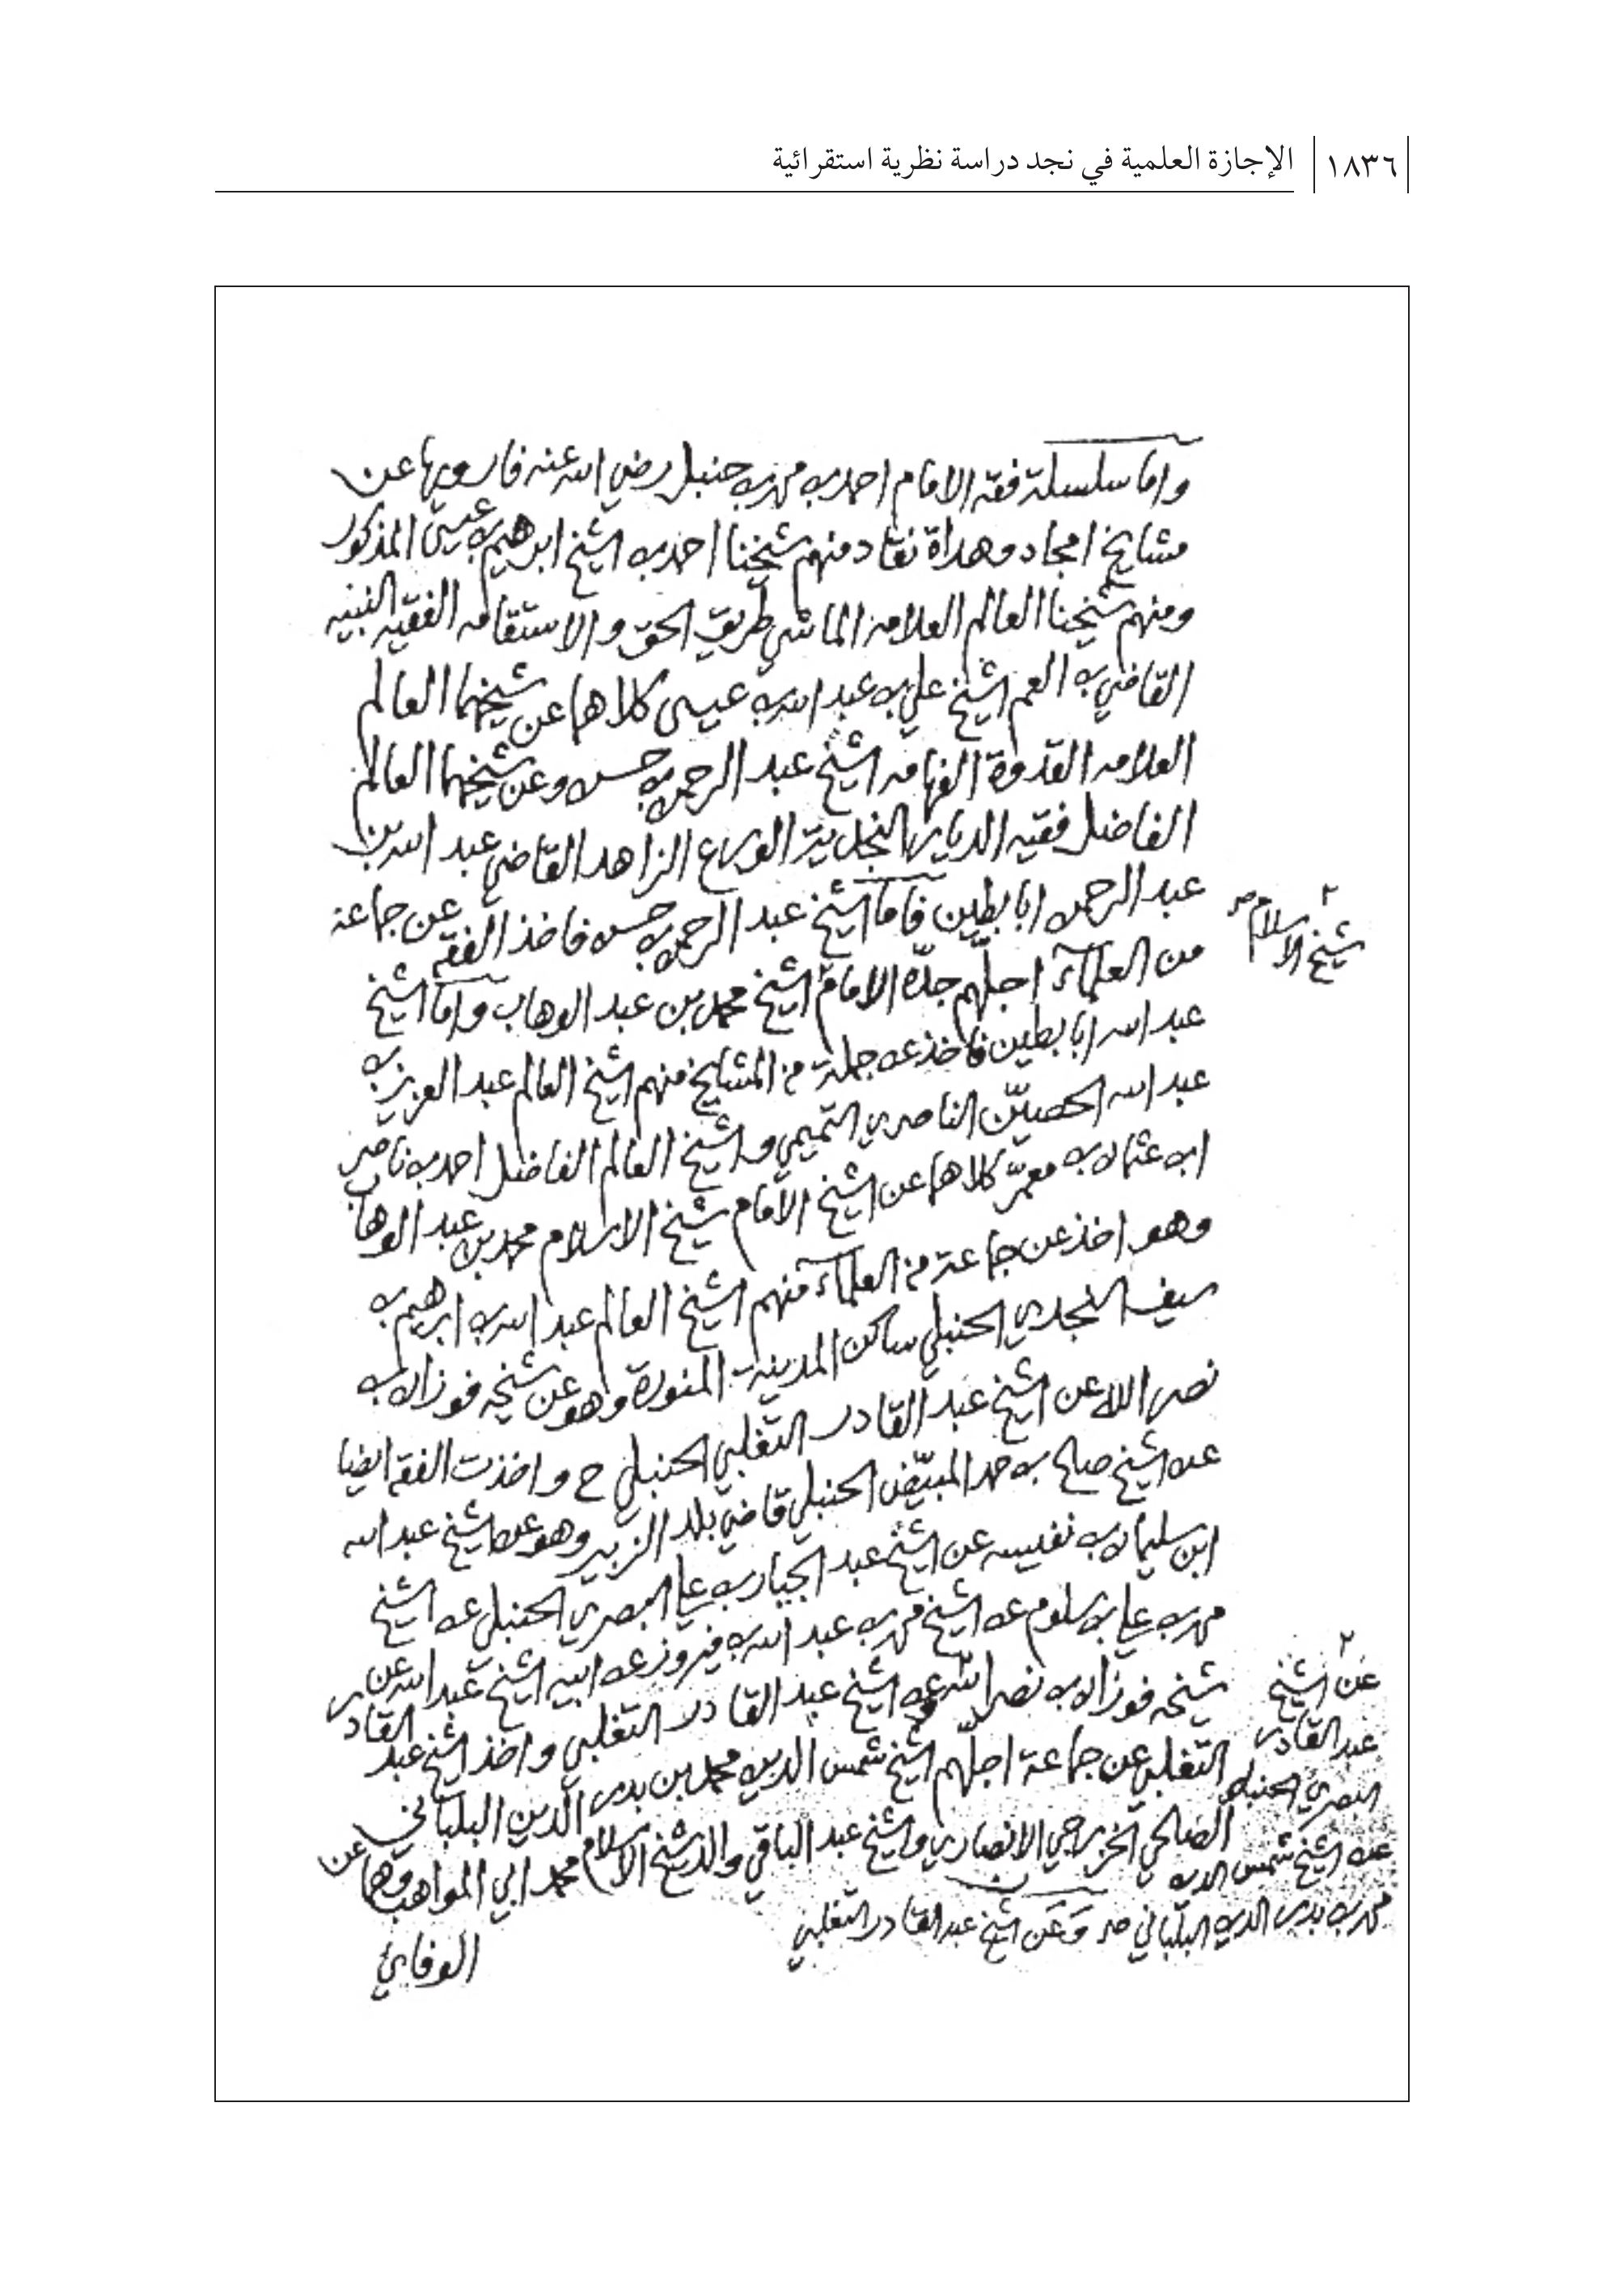 ١٨٣٦ الإجازة العلمية في نجد دراسة نظرية استقرائية
واما سلسلة فقه الامام احمد بن محمد بن حنبل رضي الله عنه فارويها عن
مشايخ امجاد وهداة نقاد منهم شيخنا احمد بن الشيخ ابرهيم بن عيسى المذكور
ومنهم شيخنا العالم العلامه الماشي طريق الحق والاستقامه الفقيه النبيه
القاضي بن العم الشيخ علي بن عبد الله بن عيسى كلاهما عن شيخهما العالم
العلامه القدوة الفهامه الشيخ عبد الرحمن بن حسن وعن شيخهما العالم
الفاضل فقيه الديار النجدية الورع الزاهد القاضي عبد الله بن
عبد الرحمن ابا بطين فاما الشيخ عبد الرحمن بن حسن فاخذ الفقه عن جماعة
شيخ الاسلام صح
من العلمآء اجلّهم جدّه الامام الشيخ محمد بن عبد الوهاب واما الشيخ
عبد الله ابا بطين فاخذ عن جملة من المشايخ منهم الشيخ العالم عبد العزيز بن
عبد الله الحصيّن الناصري التميمي والشيخ العالم الفاضل احمد بن ناصر
ابن عثمان بن معمرّ كلاهما عن الشيخ الامام شيخ الاسلام محمد بن عبد الوهاب
وهو اخذ عن جماعة من العلمآء منهم الشيخ العالم عبد الله بن ابرهيم بن
سيف النجدي الحنبلي ساكن المدينة المنورة وهو عن شيخه فوزان بن
نصر الله عن الشيخ عبد القادر التغلبي الحنبلي ح واخذت الفقه ايضا
عن الشيخ صالح بن حمد المبيّض الحنبلي قاضي بلد الزبير وهو عن الشيخ عبد الله
ابن سليمان بن نفيسه عن الشيخ عبد الجبار بن علي البصري الحنبلي عن الشيخ
محمد بن علي بن سلوم عن الشيخ محمد بن عبد الله بن فيروز عن ابيه الشيخ عبد الله عن
شيخه فوزان بن نصر الله عن الشيخ عبد القادر التغلبي واخذ الشيخ عبد القادر
التغلبي عن جماعة اجلّهم الشيخ شمس الدين محمد بن بدر الدين البلباني
الصالحي الخزرجي الانصاري والشيخ عبد الباقي والد الشيخ الاسلام محمد ابي المواهب وهما عن
عن الشيخ
عبد القادر
البصري الحنبلي
عن الشيخ شمس الدين
محمد بن بدر الدين البلباني صح وعن الشيخ عبد القادر التغلبي
الوفائي